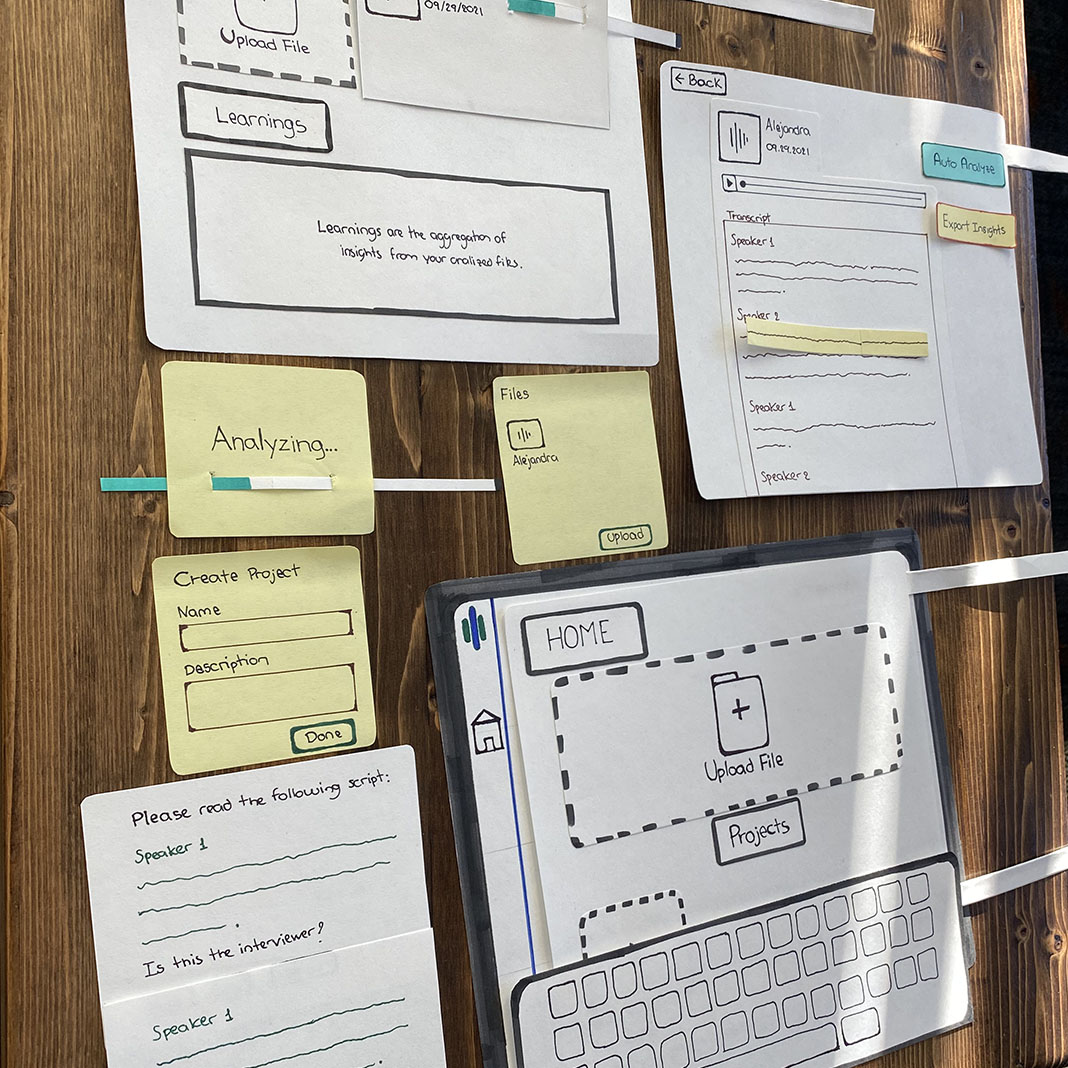 Upload File
09/29/2021
Learnings
Learnings are the aggregation of
insights from your analized files.
← Back
Alejandra
09.29.2021
Auto Analyze
Export Insights
Transcript
Speaker 1
Speaker 2
Speaker 1
Speaker 2
Analyzing...
Files
Alejandra
Upload
Create Project
Name
Description
Done
HOME
Upload File
Projects
Please read the following script:
Speaker 1
Is this the interviewer?
Speaker 1